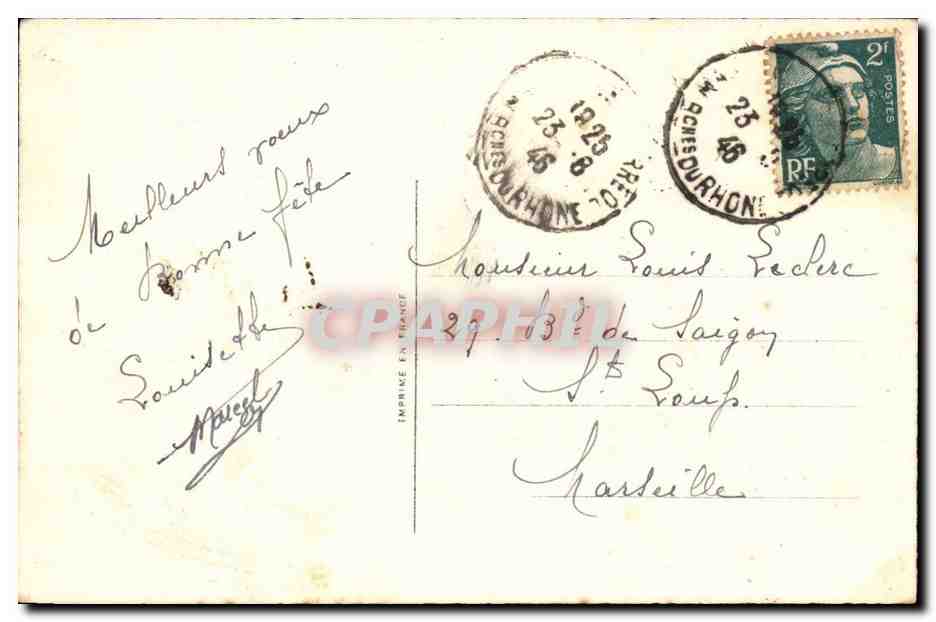 Meilleurs vœux
de bonne fête
Louisette
Marcel
IMPRIME EN FRANCE
CPAPHIL
19 25
23 8
46
BCHES DU RHONE
23
46
BCHES DU RHONE
2F
POSTES
RF
Monsieur Louis Leclerc
29. Bd de Saigon
St Loup.
Marseille